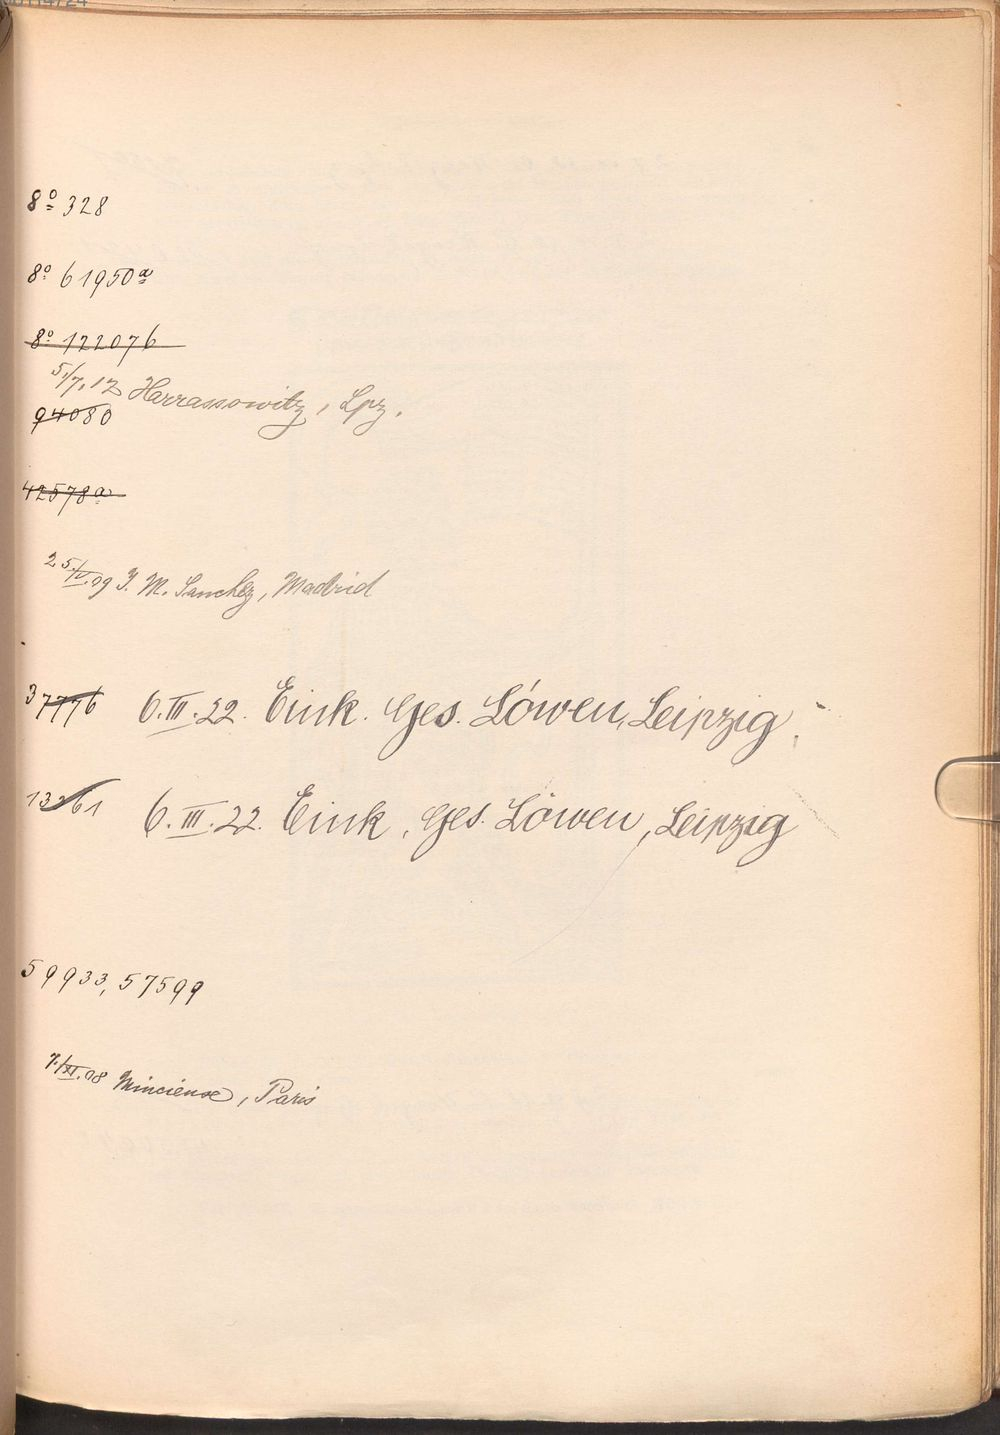 8º 328
8º 61950ª
8º 122076
5./7.12 Harrassowitz, Lpz.
94080
42578ª
25./IV.09 J. M. Sanchez, Madrid
37776 6.III.22. Eink. Ges. Löwen, Leipzig.
13261 6.III.22. Eink. Ges. Löwen, Leipzig
59933, 57599
7./XI.08 Paris